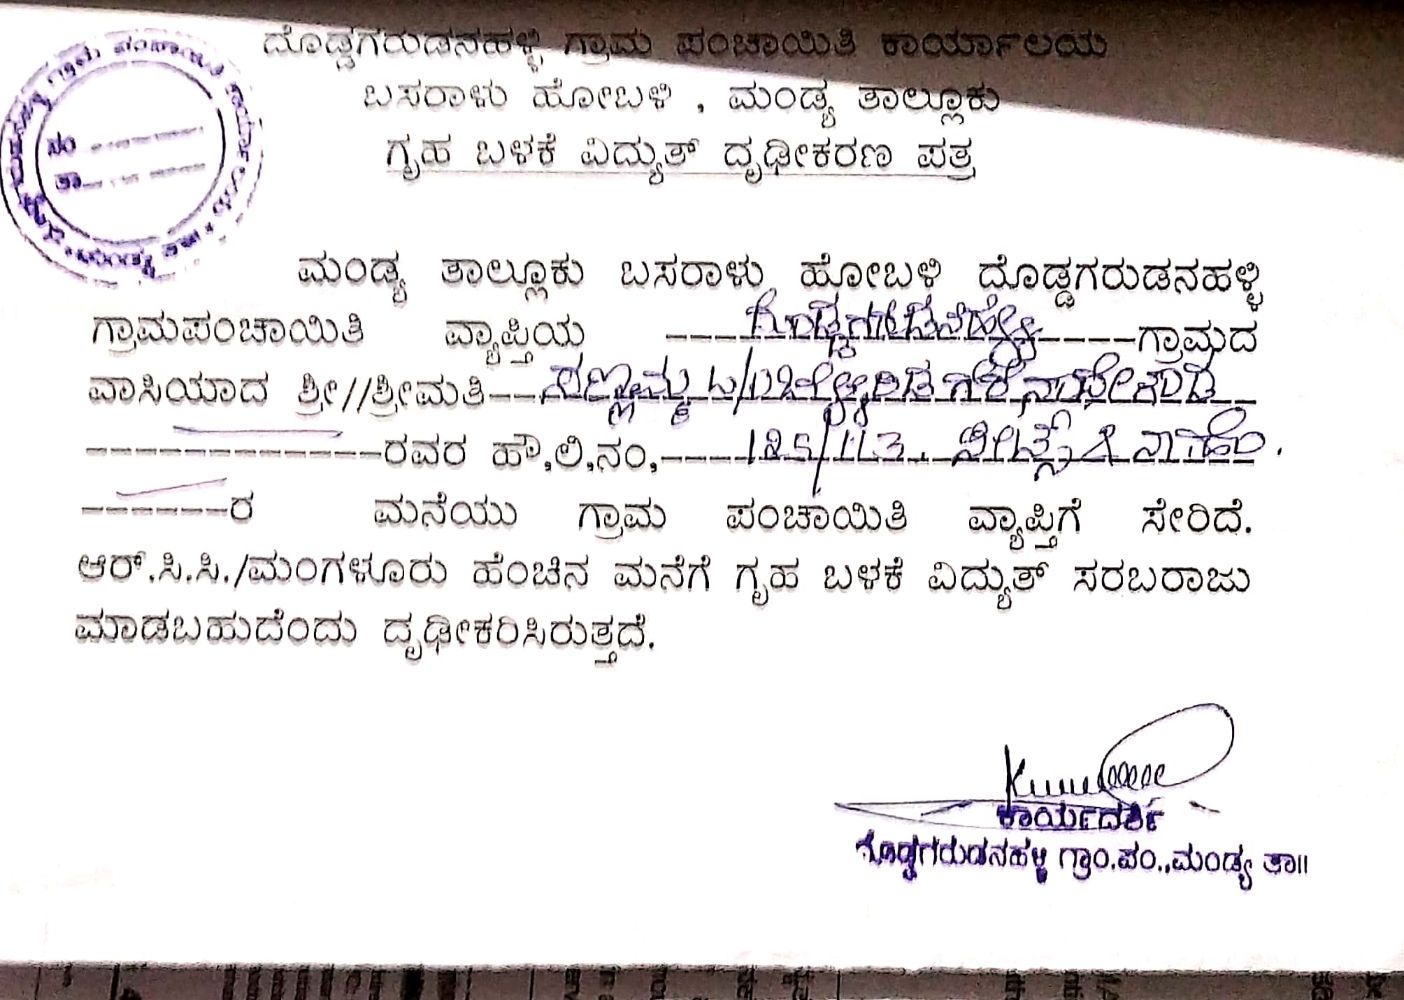 ದೊಡ್ಡಗರುಡನಹಳ್ಳಿ ಗ್ರಾಮ ಪಂಚಾಯಿತಿ ಕಾರ್ಯಾಲಯ
ಬಸರಾಳು ಹೋಬಳಿ , ಮಂಡ್ಯ ತಾಲ್ಲೂಕು
ಗೃಹ ಬಳಕೆ ವಿದ್ಯುತ್ ದೃಢೀಕರಣ ಪತ್ರ
ನಂ
ತಾ
ಮಂಡ್ಯ ತಾಲ್ಲೂಕು ಬಸರಾಳು ಹೋಬಳಿ ದೊಡ್ಡಗರುಡನಹಳ್ಳಿ
ಗ್ರಾಮಪಂಚಾಯಿತಿ ವ್ಯಾಪ್ತಿಯ ---- ದೊಡ್ಡಗರುಡನಹಳ್ಳಿ ----ಗ್ರಾಮದ
ವಾಸಿಯಾದ ಶ್ರೀ//ಶ್ರೀಮತಿ--
-------------ರವರ ಹೌ,ಲಿ,ನಂ,----
------ರ ಮನೆಯು ಗ್ರಾಮ ಪಂಚಾಯಿತಿ ವ್ಯಾಪ್ತಿಗೆ ಸೇರಿದೆ.
ಆರ್.ಸಿ.ಸಿ./ಮಂಗಳೂರು ಹೆಂಚಿನ ಮನೆಗೆ ಗೃಹ ಬಳಕೆ ವಿದ್ಯುತ್ ಸರಬರಾಜು
ಮಾಡಬಹುದೆಂದು ದೃಢೀಕರಿಸಿರುತ್ತದೆ.
ಕಾರ್ಯದರ್ಶಿ
ದೊಡ್ಡಗರುಡನಹಳ್ಳಿ ಗ್ರಾಂ.ಪಂ.,ಮಂಡ್ಯ ತಾ॥